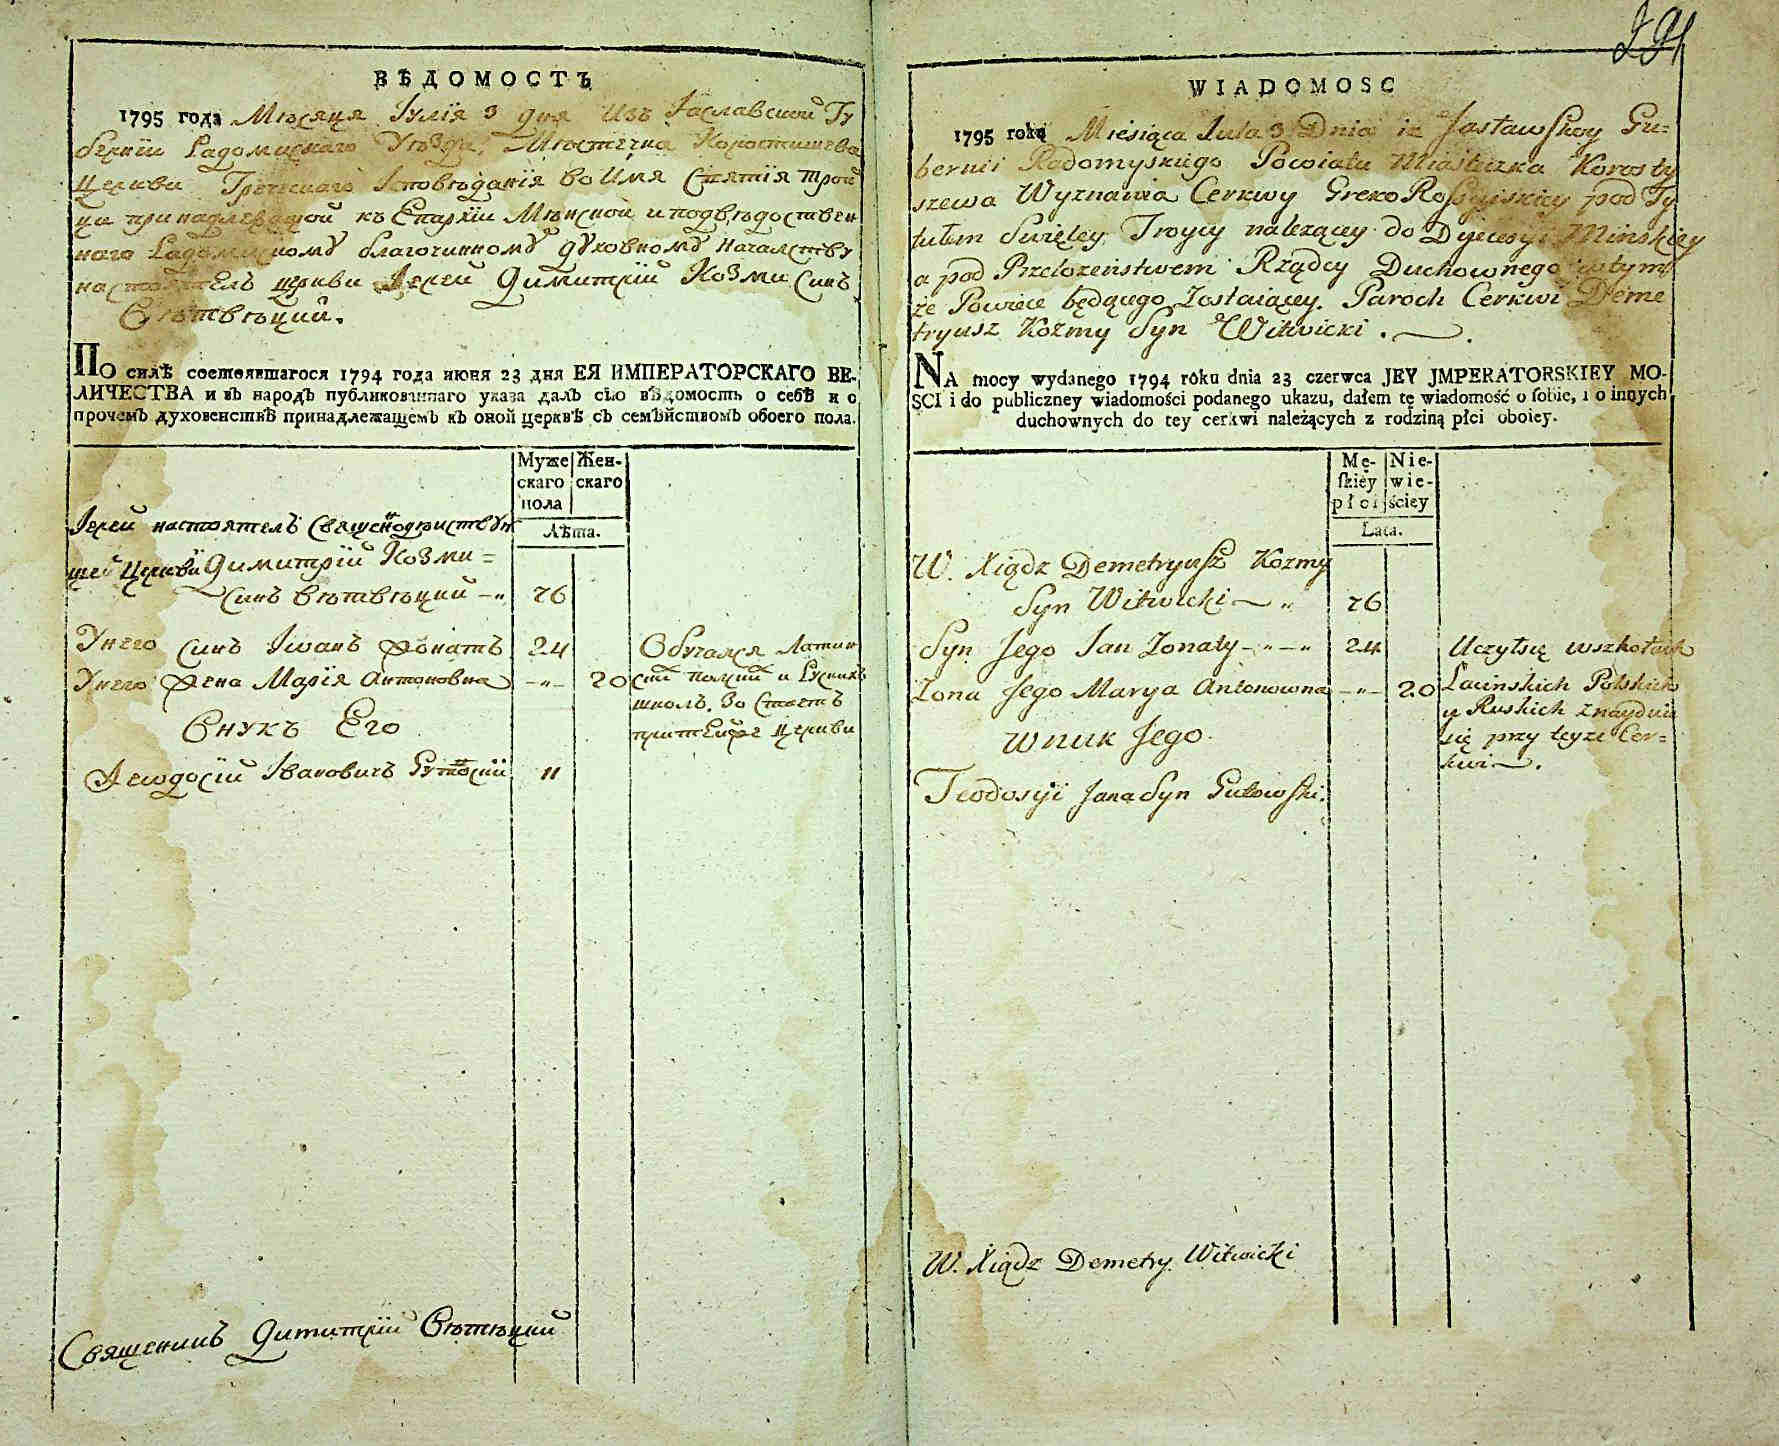 ВѢДОМОСТЬ
1795 года Мѣсяця Іулїя 3 дня Изъ Іаславской Гу
бернїи Радомиского Уѣзда, Мѣстечка Коростишева
Церкви Греческаго Ісповѣданїя во Имя Святїя Трой
ци принадлежащой къ Епархїи Мѣнской и подвѣдоствен
наго Радомискому благочинному духовному началству
настоятелъ церкви Іерей Димитрїй Козми Синъ
Вѣтвѣцкий.
ПО силѣ состоявшагося 1794 года июня 23 дня ЕЯ ИМПЕРАТОРСКАГО ВЕ-
ЛИЧЕСТВА и въ народъ публикованнаго указа далъ сїю вѣдомость о себѣ и о
прочемъ духовенствѣ принадлежащемъ къ оной церквѣ съ семѣйствомъ обоего пола.
Муже Жен-
скаго скаго
пола
Лѣта.
Іерей настоятелъ Священодѣиствую
щей Церкви Димитрїй Козми =
Синъ Вѣтвѣцкий 76
Унего синъ Іоанъ Зонатъ 24 Обучался Латин
Унего Жена Марїя Антоновна 20 ски полски и Руских
школъ. Во стоетъ
Внукъ Его при тей же Церкви
Ѳеодосїй Івановичъ Гутовскїй 11
Священикъ Димитрїй Вѣтвѣцкий
291
WIADOMOSC
1795 roku Miesiąca Jula 3 Dnia iz Jasławskoy Gu=
bernii Radomyskiego Powiatu Miasteczka Korosty
szewa Wyznania Cerkwy Greko Rossyiskiey pod Ty
tułem Swiętey Troycy nalezącey do Dyiecesyi Minskiey
a pod Przełozeństwem Rządcy Duchownego wtym
że Powiece będącego Zostaiącey. Paroch Cerkwi Deme
tryusz Kozmy Syn Witwicki.
NA mocy wydanego 1794 roku dnia 23 czerwca JEY JMPERATORSKIEY MO-
SCI i do publiczney wiadomości podanego ukazu, dałem tę wiadomość o sobie, i o innych
duchownych do tey cerkwi należących z rodziną płci oboiey.
Mę- Nie-
skiéy wie-
płci ściey
Lata.
W. Xiądz Demetryusz Kozmy
Syn Witwicki 76
Syn Jego Jan Zonaty 24 Uczyłsię wszkołach
Zona Jego Marya Antonowna 20 Łacinskich Polskich
y Ruskich znayduie
Wnuk Jego. się przy teyze Cer=
kwi.
Teodosyi Jana Syn Gutowski.
W. Xiądz Demetry Witwicki